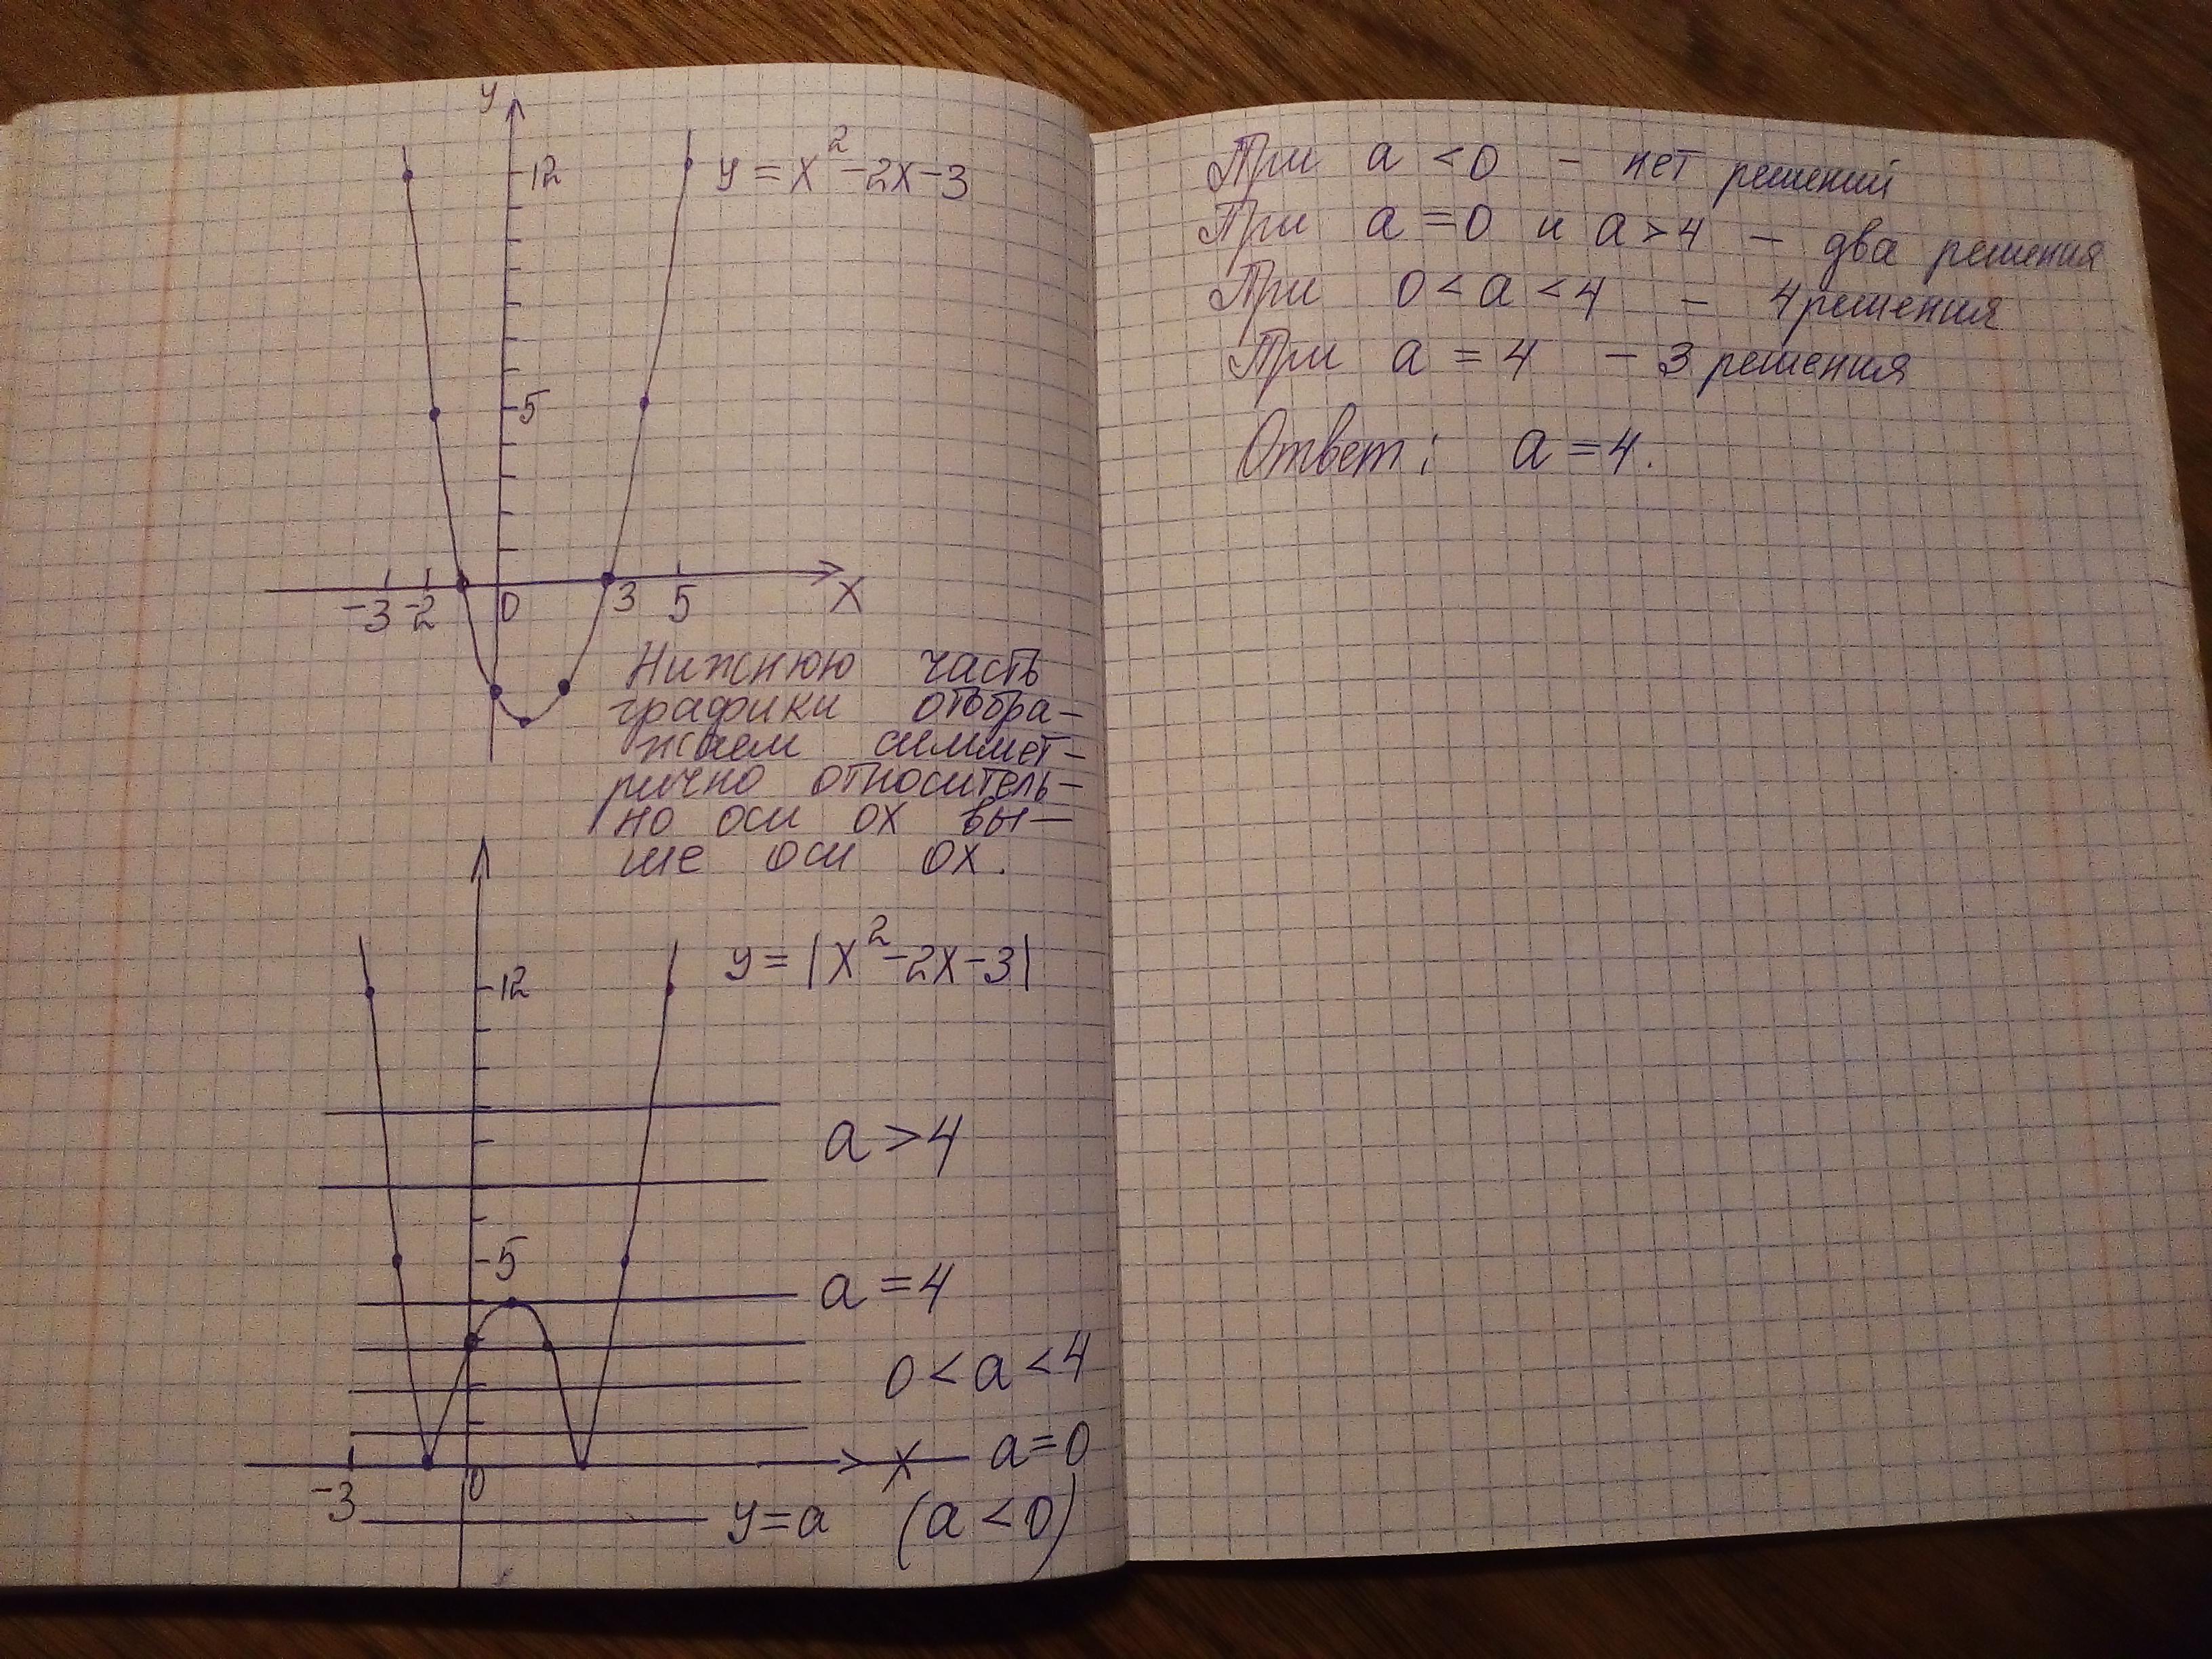 y
12
y = x² - 2x - 3
5
-3 -2 0 3 5 x
Нижнюю часть
графики отобра-
жаем симмет-
рично относитель-
но оси ох вы-
ше оси ох.
y = |x² - 2x - 3|
12
a > 4
5
a = 4
0 < a < 4
x a = 0
-3 0
y = a (a < 0)
При a < 0 - нет решений
При a = 0 и a > 4 - два решения
При 0 < a < 4 - 4 решения
При a = 4 - 3 решения
Ответ: a = 4.